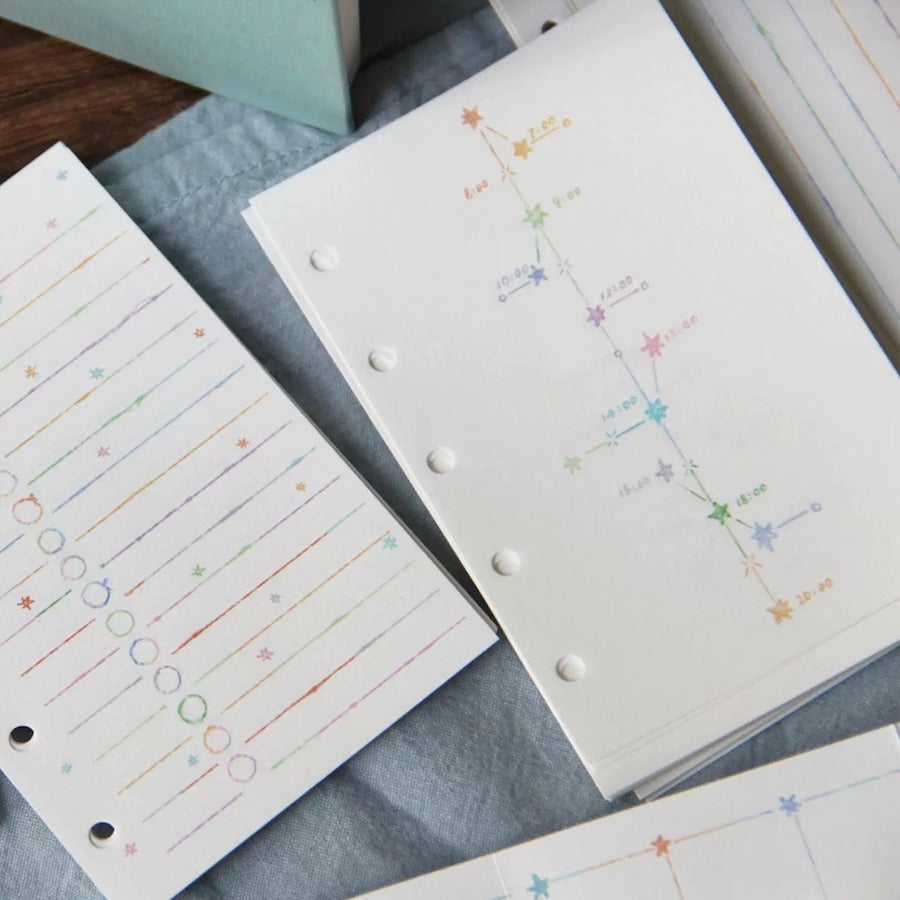 7:00
8:00
9:00
10:00
12:00
13:00
14:00
15:00
18:00
20:00